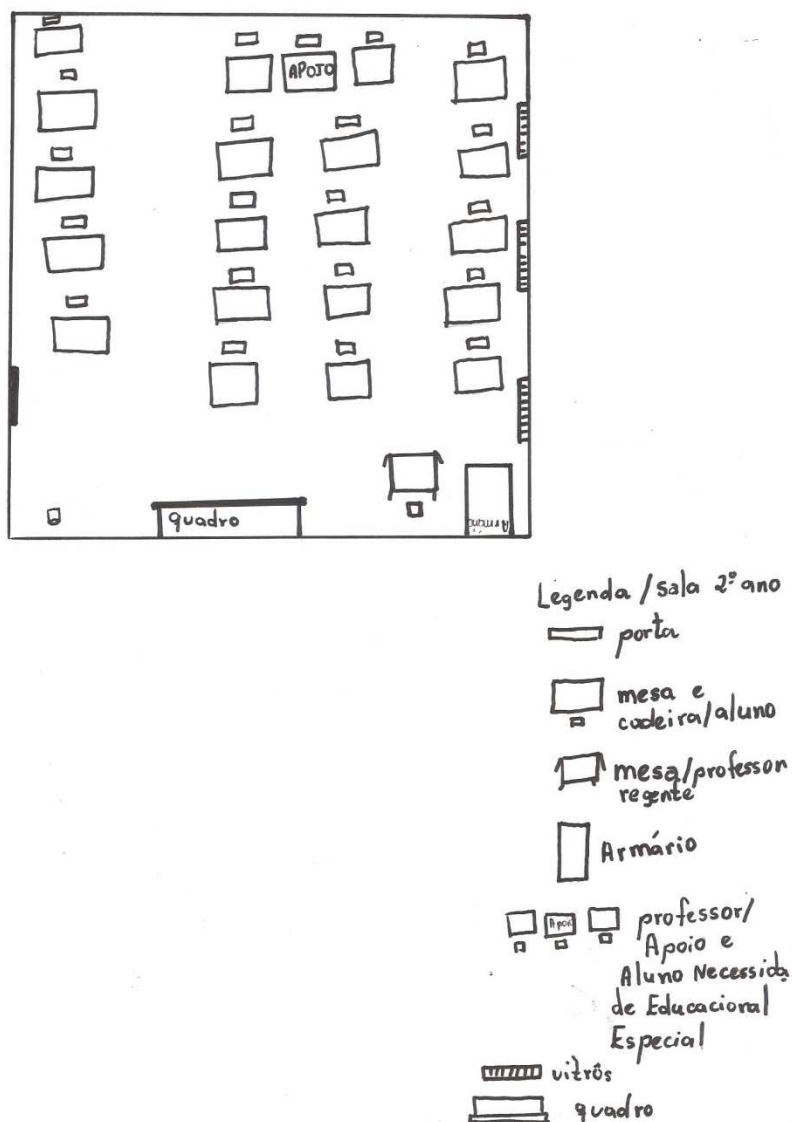 APOIO
quadro
Armário
Legenda / sala 2º ano
porta
mesa e
cadeira/aluno
mesa/professor
regente
Armário
Apoio
professor/
Apoio e
Aluno Necessida
de Educacional
Especial
vitrôs
quadro